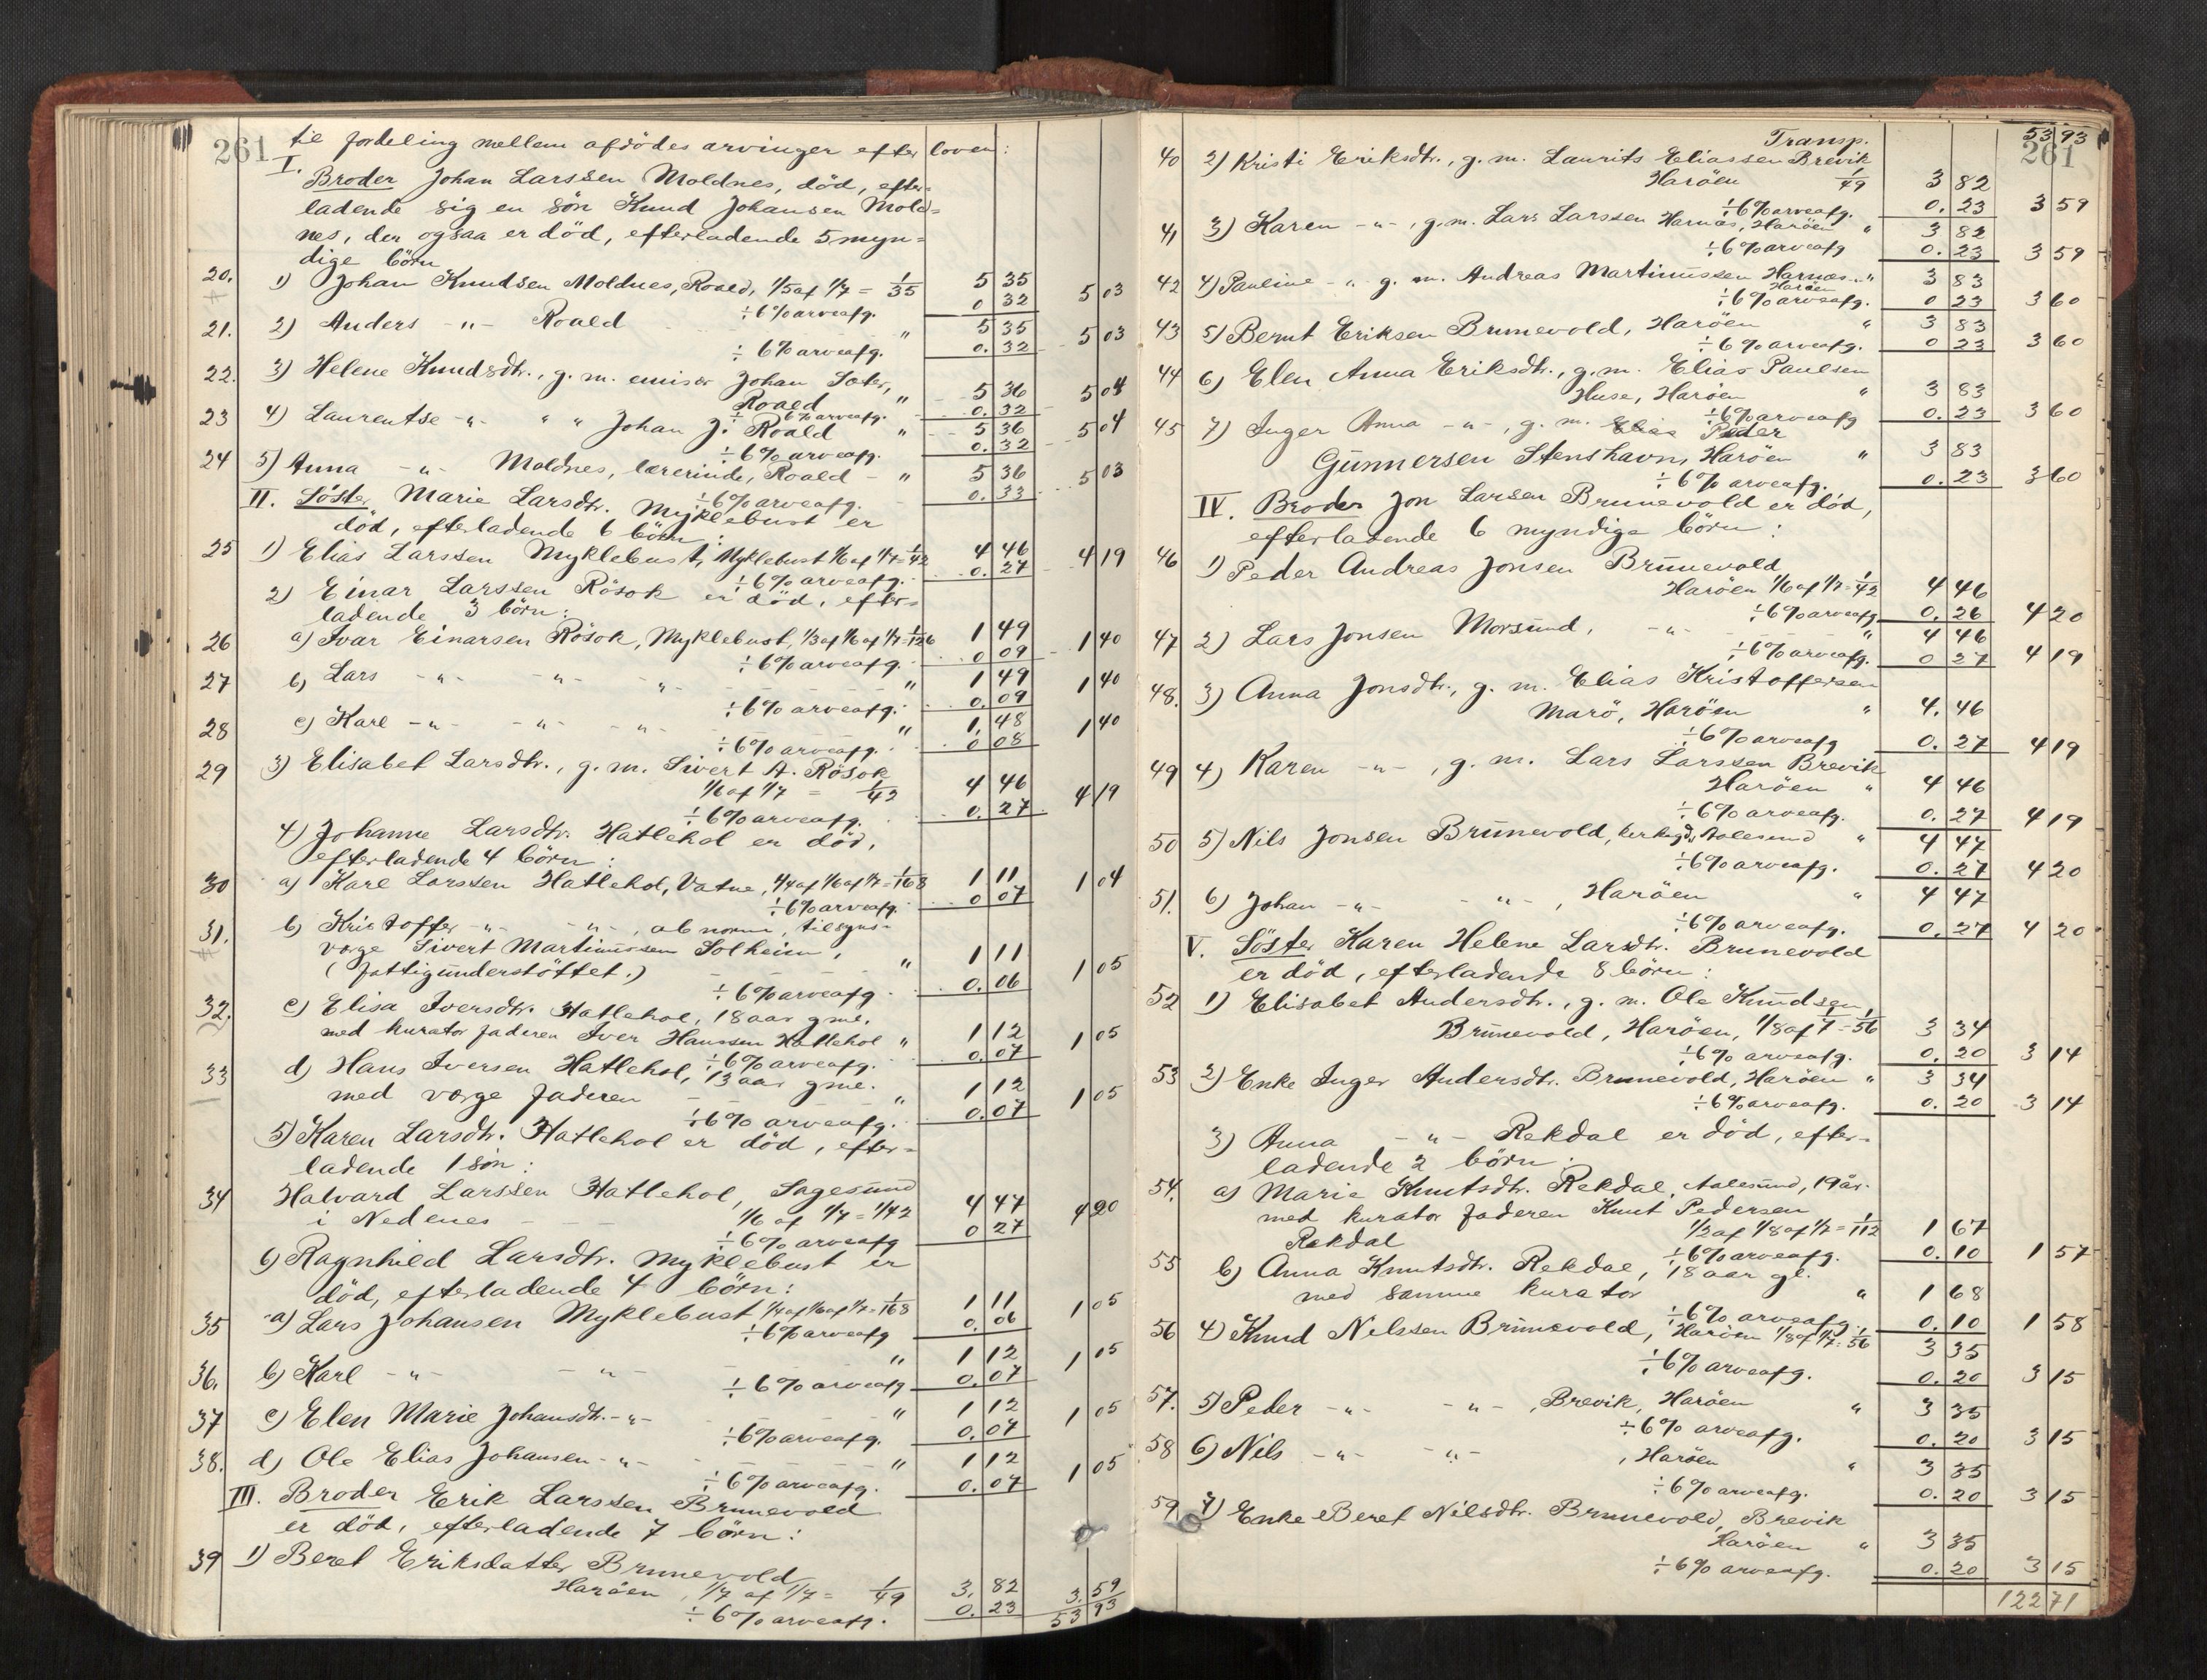 261 til fordeling mellem afdödes arvinger efter loven:
I. Broder Johan Larssen Moldnes, död, efter=
ladende sig en sön Knud Johansen Mold=
nes, der ogsaa er död, efterladende 5 myn=
dige börn
20. 1) Johan Knudsen Moldnes, Roald, 1/5 af 1/7 = 1/35 5 35
÷ 6% arveafg. 0 32 5 03
21. 2) Anders -"- Roald " 5 35
÷ 6% arveafg. 0.32 5 03
22. 3) Helene Knudsdtr., g. m. emisær Johan Sæter,
Roald " 5 36
÷ 6% arveafg. 0.32 5 04
23 4) Laurentse -"- " " Johan J. Roald " 5 36
÷ 6% arveafg. 0.32 5 04
24 5) Anna -"- Moldnes, lærerinde, Roald - " 5 36
÷ 6% arveafg. 0.33 5 03
II. Söster Marie Larsdtr. Myklebust er
död, efterladende 6 börn:
25 1) Elias Larssen Myklebust, Myklebust 1/6 af 1/7 = 1/42 4 46
÷ 6% arveafg. 0.27 4 19
2) Einar Larssen Rösok er död, efter-
ladende 3 börn:
26 a) Ivar Einarsen Rösok, Myklebust, 1/3 af 1/6 af 1/7 = 1/126 1 49
÷ 6% arveafg. 0 09 1 40
27 b) Lars -"- -"- -"- " 1 49
÷ 6% arveafg. 0.09 1 40
28 c) Karl -"- -"- -"- " 1.48
÷ 6% arveafg. 0 08 1 40
29 3) Elisabet Larsdtr., g. m. Sivert A. Rösok
1/6 af 1/7 = 1/42 4 46
÷ 6% arveafg. 0.27 4 19
4) Johanne Larsdtr. Hatlehol er död,
efterladende 4 börn:
30 a) Karl Larssen Hatlehol, Vatne, 1/4 af 1/6 af 1/7 = 1/168 1 11
÷ 6% arveafg. 0 07 1 04
31. b) Kristoffer -"- -"-, abnorm, tilsyns-
værge Sivert Martinussen Solheim,
(fattigunderstöttet.) " 1 11
÷ 6% arveafg. 0.06 1 05
32. c) Elisa Iversdtr. Hatlehol, 18 aar gml.
med kurator faderen Iver Hanssen Hatlehol " 1 12
÷ 6% arveafg. 0.07 1 05
33 d) Hans Iversen Hatlehol, 13 aar gml.
med værge faderen " 1 12
÷ 6% arveafg. 0.07 1 05
5) Karen Larsdtr. Hatlehol er död, efter-
ladende 1 sön:
34 Halvard Larssen Hatlehol, Sagesund
i Nedenes 1/6 af 1/7 = 1/42 4 47
÷ 6% arveafg 0 27 4 20
6) Ragnhild Larsdtr. Myklebust er
död, efterladende 4 börn:
35 a) Lars Johansen Myklebust 1/4 af 1/6 af 1/7 = 1/168 1 11
÷ 6% arveafg 0.06 1 05
36. b) Karl -"- -"- " 1 12
÷ 6% arveafg 0.07 1 05
37 c) Elen Marie Johansdtr. -"- " 1 12
÷ 6% arveafg. 0.07 1 05
38. d) Ole Elias Johansen -"- " 1 12
÷ 6% arveafg. 0.07 1 05
III. Broder Erik Larssen Brunevold
er död, efterladende 7 börn:
39 1) Beret Eriksdatter Brunevold
Haröen, 1/7 af 1/7 = 1/49 3.82
÷ 6% arveafg. 0.23 3.59
53 93
Transp. 53 93
261
40 2) Kristi Eriksdtr., g. m. Laurits Eliassen Brevik
Haröen 1/49 3 82
÷ 6% arveafg. 0.23 3 59
41 3) Karen -"-, g. m. Lars Larssen Harnæs, Haröen " 3 82
÷ 6% arveafg 0.23 3 59
42 4) Pauline -"- g. m. Andreas Martinussen Harnæs -"
Haröen 3 83
÷ 6% arveafg. 0 23 3 60
43 5) Bernt Eriksen Brunevold, Haröen " 3 83
÷ 6% arveafg. 0 23 3 60
44 6) Elen Anna Eriksdtr., g. m. Elias Paulsen
Huse, Haröen " 3 83
÷ 6% arveafg 0.23 3 60
45 7) Inger Anna -"-, g. m. Elias Peder
Gunnersen Stenshavn, Haröen " 3 83
÷ 6% arveafg. 0.23 3 60
IV. Broder Jon Larsen Brunevold er död,
efterladende 6 myndige börn:
46 1) Peder Andreas Jonsen Brunevold
Haröen 1/6 af 1/7 = 1/42 4 46
÷ 6% arveafg 0.26 4 20
47 2) Lars Jonsen Morsund, -"- " 4 46
÷ 6% arveafg. 0 27 4 19
48. 3) Anna Jonsdtr., g. m. Elias Kristoffersen
Marö, Haröen " 4.46
÷ 6% arveafg 0.27 4 19
49 4) Karen -"-, g. m. Lars Larssen Brevik
Haröen " 4 46
÷ 6% arveafg. 0.27 4 19
50 5) Nils Jonsen Brunevold, Aalesund " 4 47
÷ 6% arveafg. 0.27 4 20
51. 6) Johan -"- -"-, Haröen " 4 47
÷ 6% arveafg. 0.27 4 20
V. Söster Karen Helene Larsdtr. Brunevold
er död, efterladende 8 börn:
52 1) Elisabet Andersdtr., g. m. Ole Knudsen
Brunevold, Haröen, 1/8 af 1/7 = 1/56 3 34
÷ 6% arveafg. 0.20 3 14
53 2) Enke Inger Andersdtr. Brunevold, Haröen " 3 34
÷ 6% arveafg. 0.20 3 14
3) Anna -"- Rekdal er död, efter-
ladende 2 börn:
54. a) Marie Knutsdtr. Rekdal, Aalesund, 19 år.
med kurator faderen Knut Pedersen
Rekdal 1/2 af 1/8 af 1/7 = 1/112 1 67
÷ 6% arveafg. 0.10 1 57
55 b) Anna Knutsdtr. Rekdal, 18 aar gl.
med samme kurator " 1 68
÷ 6% arveafg. 0.10 1 58
56 4) Knud Nilssen Brunevold, Haröen 1/8 af 1/7 = 1/56 3 35
÷ 6% arveafg. 0.20 3 15
57. 5) Peder -"- -"-, Brevik, Haröen " 3 35
÷ 6% arveafg. 0.20 3 15
58 6) Nils -"- -"-, Haröen " 3 35
÷ 6% arveafg. 0.20 3 15
59. 7) Enke Beret Nilsdtr. Brunevold, Brevik
Haröen " 3 35
÷ 6% arveafg. 0.20 3 15
122 71